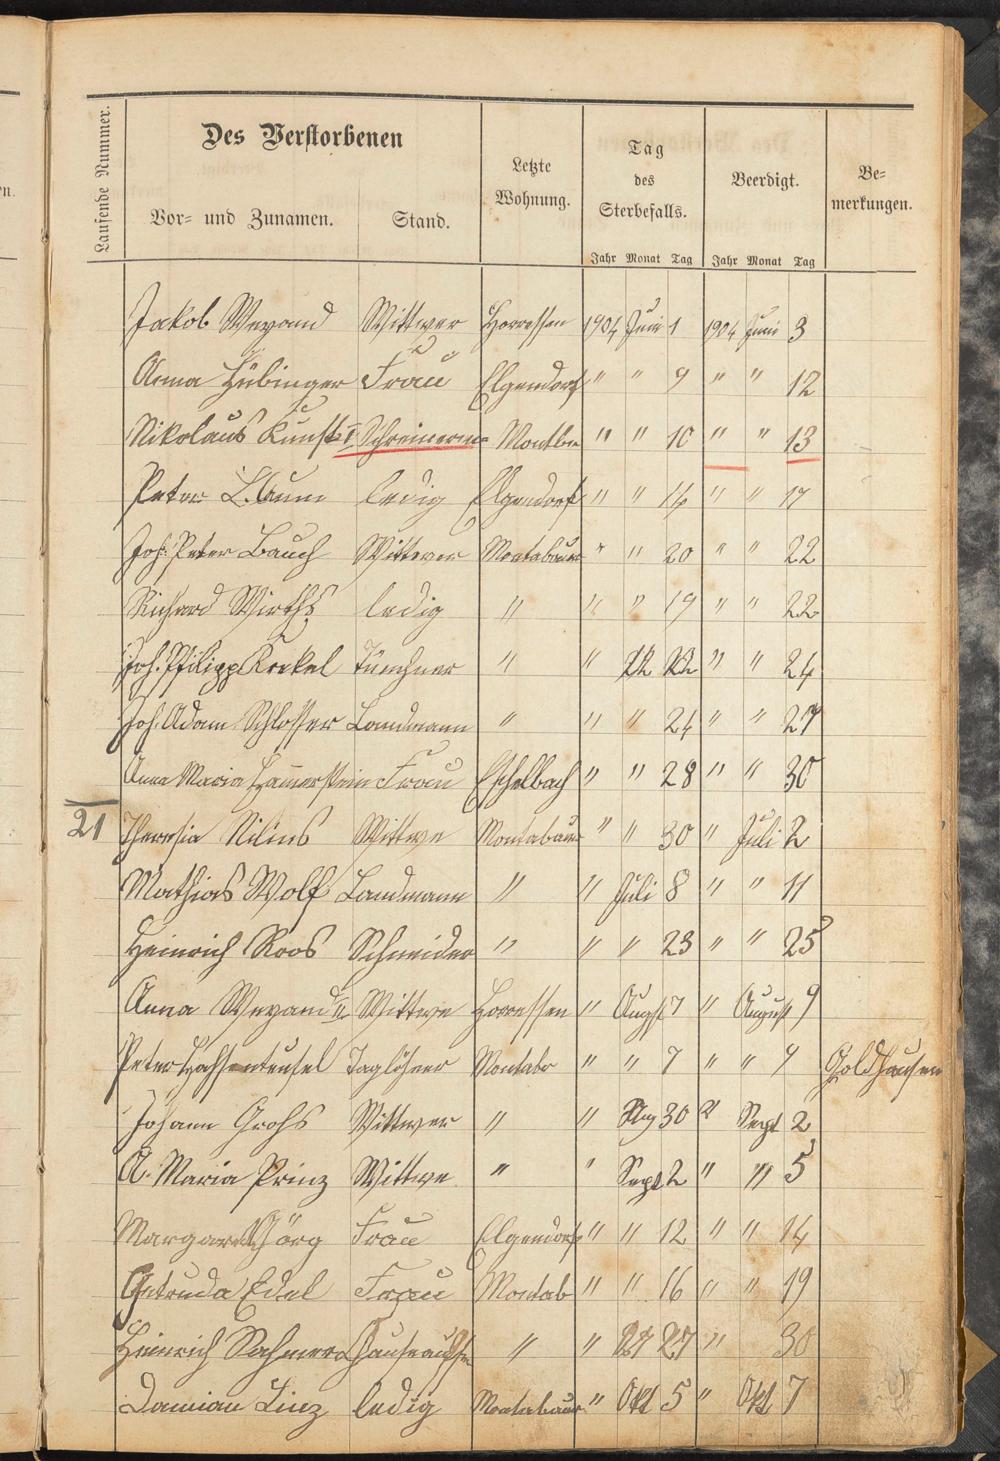 n.
Laufende Nummer.
Des Verstorbenen
Vor- und Zunamen. Stand.
Letzte Wohnung.
Tag des Sterbefalls.
Beerdigt.
Be-
merkungen.
Jahr Monat Tag Jahr Monat Tag
Jakob Weyand Wittwer Horressen 1904 Juni 1 1904 Juni 3
Anna Hübinger Frau Elgendorf " " 9 " " 12
Nikolaus Kunst I Schreinerm Montbr " " 10 " " 13
Peter ledig Elgendorf " " 14 " " 17
Joh. Peter Bauch Wittwer Montabaur " " 20 " " 22
Richard Wirths ledig " " " 19 " " 22
Joh. Philipp Krekel Tünchner " " 22 " " 24
Joh. Adam Schlosser Landmann " " " 24 " " 27
Anna Maria Hammerstein Frau Eschelbach " " 28 " " 30
21 Theresia Nilius Wittwe Montabaur " " 30 " Juli 2
Mathias Wolf Landmann " " Juli 8 " " 11
Heinrich Roos Schneider " " " 23 " " 25
Anna Weyand II Wittwe Horressen " Augst 7 " August 9
Peter Hassenteufel Taglöhner Montabr " " 7 " " 9 Goldhausen
Johann Grohs Wittwer " " Aug 30 " Sept 2
A. Maria Prinz Wittwe " " Sept 2 " " 5
Margaret Jörg Frau Elgendorf " " 12 " " 14
Getruda Edel Frau Montab " " 16 " " 19
Heinrich " " 27 " 30
Damian Linz ledig Montabaur " Okt 5 " Okt 7